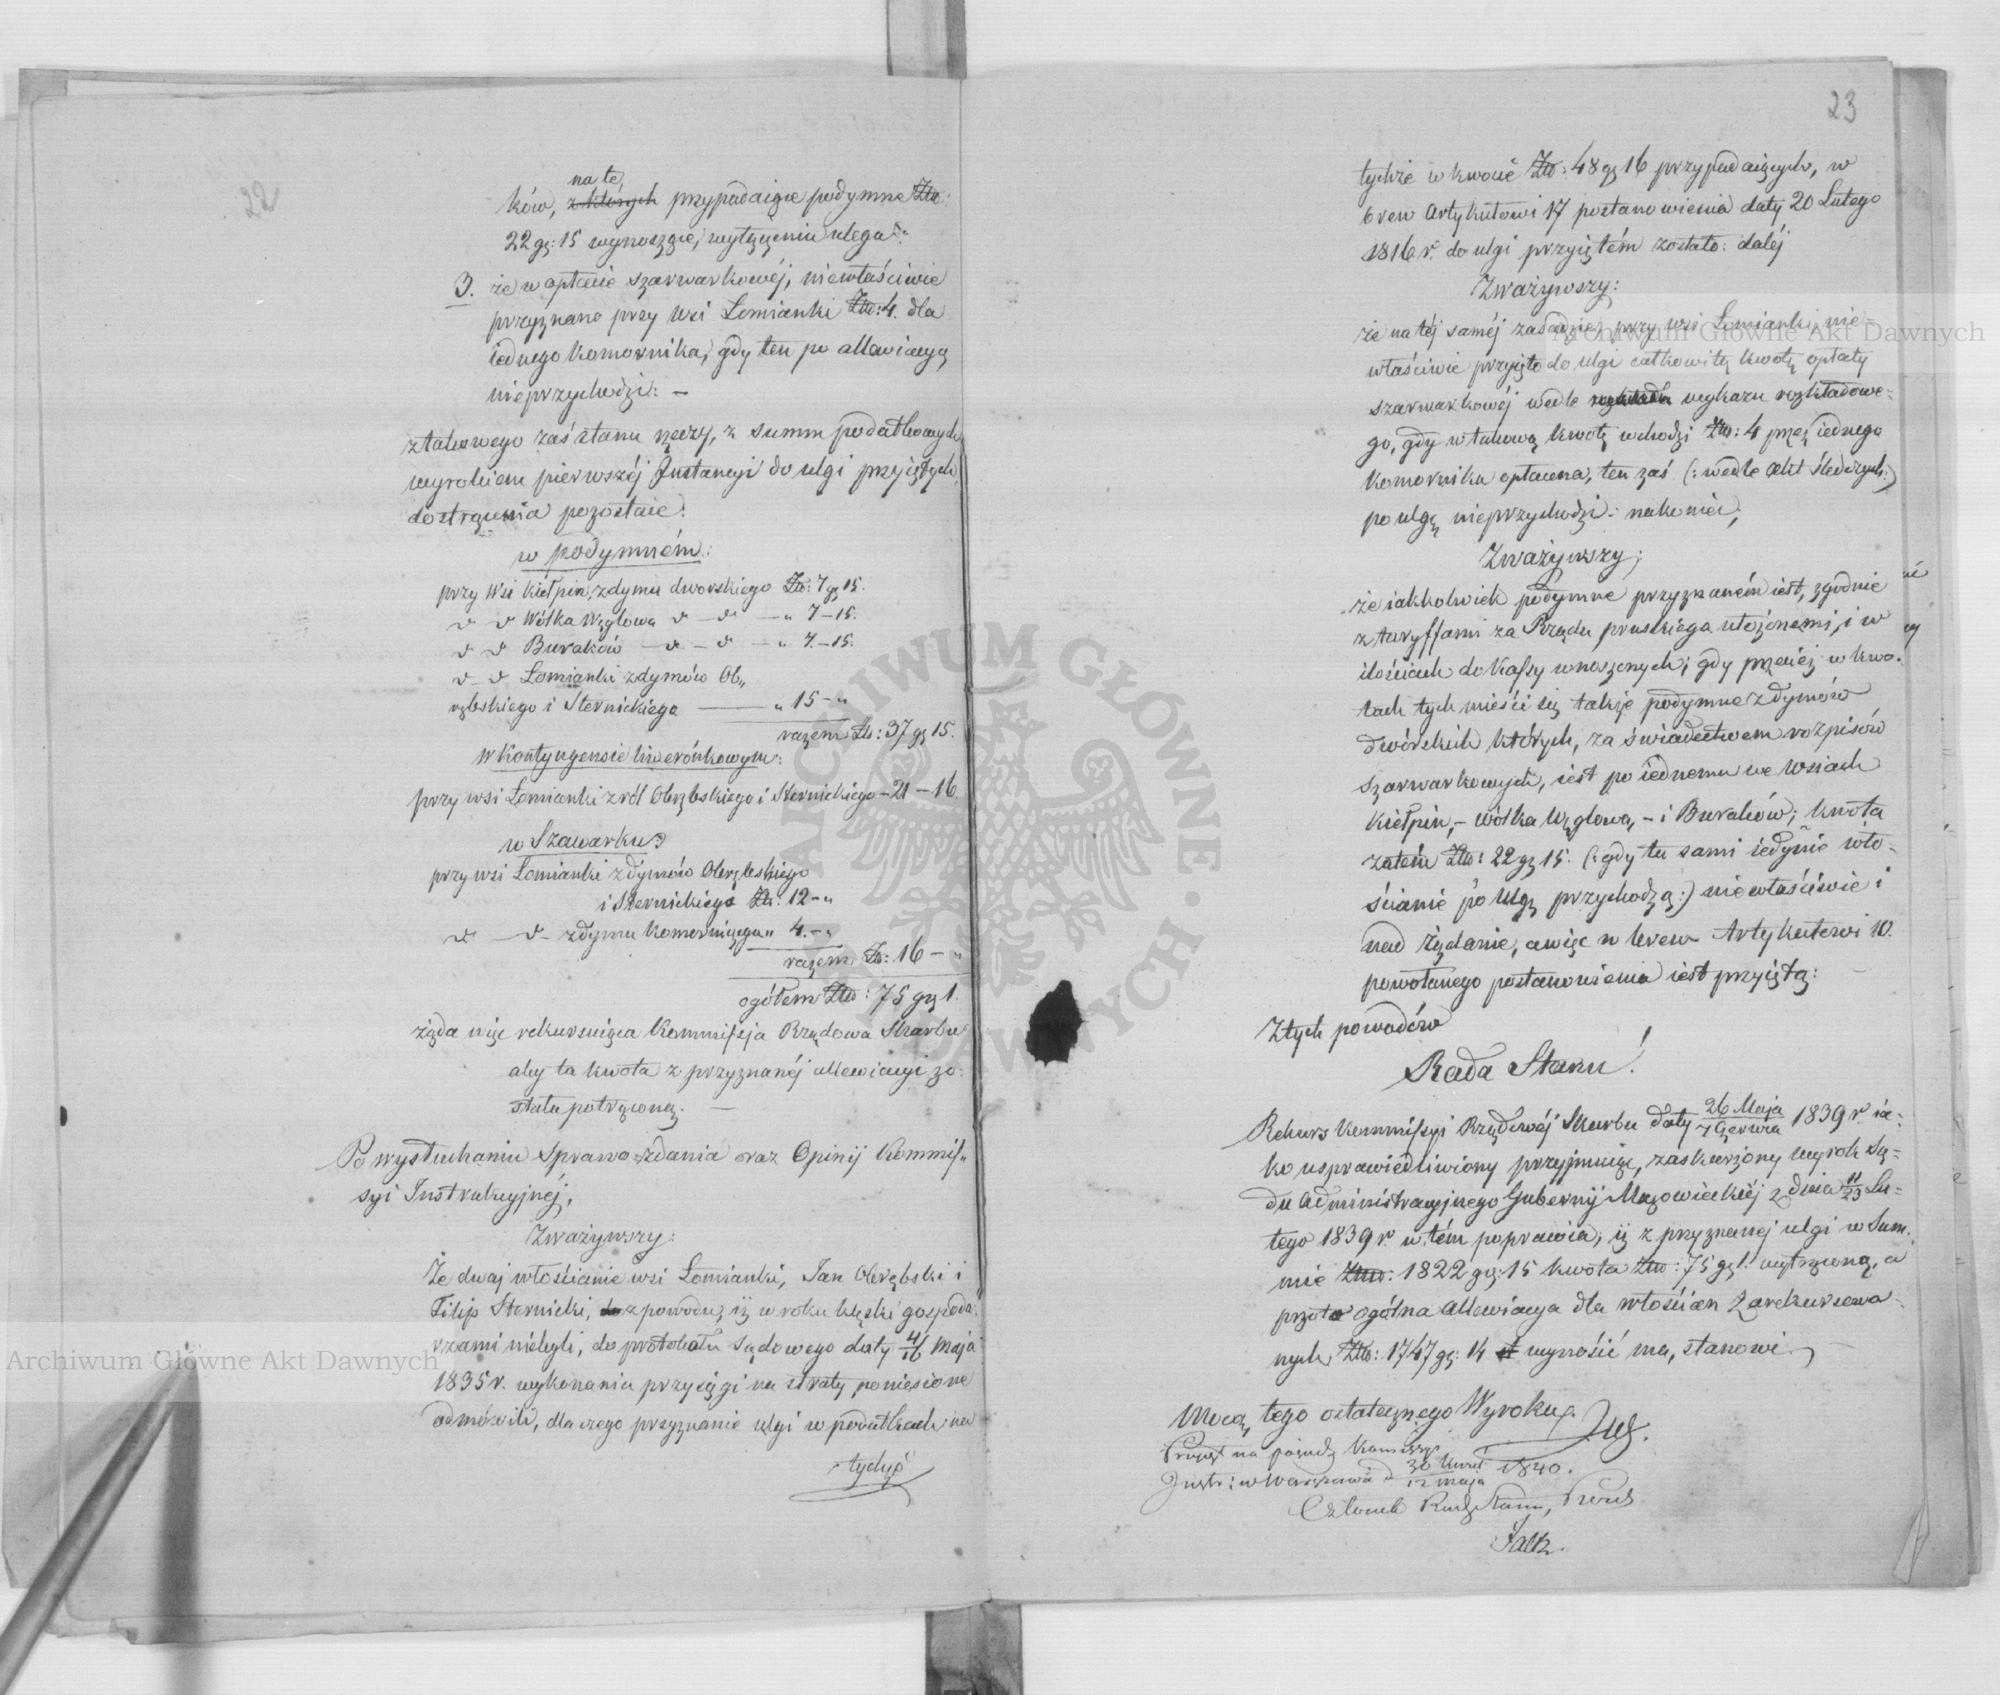 22
na te
ków, z których przypadaiące podymne Złto:
22 gr: 15 wynoszące, wyłączeniu ulega:
3. że w opłacie szarwarkowéj, niewłaściwie
przyznano przy wsi Łomianki Złto: 4. dla
iednego komornika, gdy ten po allewiacyą
nieprzychodzi: —
z takowego zaś stanu rzeczy, z summ podatkowych
wyrokiem pierwszéj Instancyi do ulgi przyiętych,
do strącenia pozostaie:
w podymném:
przy wsi Kiełpin, z dymu dworskiego Złt: 7 gr 15.
" " Wólka Węglowa " — " — " 7 — 15.
" " Buraków — " — " — " 7. — 15.
" " Łomianki z dymów Ob„
rębskiego i Sternickiego — " 15 — "
razem Złt: 37 gr 15.
w Kontyngensie liwerónkowym:
przy wsi Łomianki z ról Obrębskiego i Sternickiego — 21 — 16
w Szawarku
przy wsi Łomianki z dymów Obrębskiego
i Sternickiego Złt: 12 — "
" — " — z dymu komorniczego " 4. — "
razem Złt: 16 — "
ogółem Złto: 75 gr 1.
żąda więc rekursuiąca Kommissja Rządowa Skarbu
aby ta kwota z przyznanéj allewiacyi zo-
stała potrąconą. —
Po wysłuchaniu Sprawo-zdania oraz Opinij Kommis„
syi Instrukcyjnéj,
Zważywszy:
Że dwaj włościanie wsi Łomianki, Jan Obrębski i
Filip Sternicki, z powodu, iż w roku klęski gospoda-
rzami niebyli, do protokułu sądowego daty 4/16 Maja
1835 r. wykonania przysięgi na straty poniesione
odmówili, dla czego przyznanie ulgi w podatkach na
tychże
23
tychże w kwocie Złto: 48 gr 16 przypadaiących, w
brew Artykułowi 17 postanowienia daty 20 Lutego
1816 r. do ulgi przyiętém zostało: daléj
Zważywszy:
że na téj saméj zasadzie, przy wsi Łomianki, nie-
właściwie przyięto do ulgi całkowitą kwotę opłaty
szarwarkowéj wedle wykazu rozkładowe-
go, gdy w takową kwotę wchodzi Złto: 4 przez iednego
komornika opłacona, ten zaś (: wedle Akt śledczych :)
po ulgę nieprzychodzi: nakoniec,
Zważywszy;
że iakkolwiek podymne przyznaném iest, zgodnie
z taryffami za Rządu pruskiego ułożonemi, i w
ilościach do kassy wnoszonych; gdy przecież w kwo-
tach tych mieści się także podymne z dymów
dwórskich których, za świadectwem rozpisów
szarwarkowych, iest po iednemu we wsiach
Kiełpin, — Wólka Węglowa, — i Buraków; kwota
zatém Złto: 22 gr 15. (: gdy tu sami iedynie wło-
ścianie po ulgę przychodzą :) niewłaściwie i
nad żądanie, a więc w brew Artykułowi 10.
powołanego postanowienia iest przyiętą:
Z tych powodów
Rada Stanu!
Rekurs Kommissyi Rządowéj Skarbu daty 26 Maja / 7 Czerwca 1839 r. ia-
ko usprawiedliwiony przyjmuiąc, zaskarżony wyrok Są-
du Administracyjnego Gubernij Mazowieckiéj z dnia 11/23 Lu-
tego 1839 r. w tém poprawia, iż z przyznanej ulgi w Sum-
mie Złto: 1822 gr: 15 kwota Złto: 75 gr 1. wytrąconą, a
przeto ogólna Allewiacya dla włościan zarekursowa-
nych Złto: 1747 gr: 14 wynosić ma, stanowi —
Mocą tego ostatecznego Wyroku.
na posiedz Kommissyi
Instr: w Warszawie d 30 Kwiet / 12 Maja 1840.
Członek Rady Stanu,